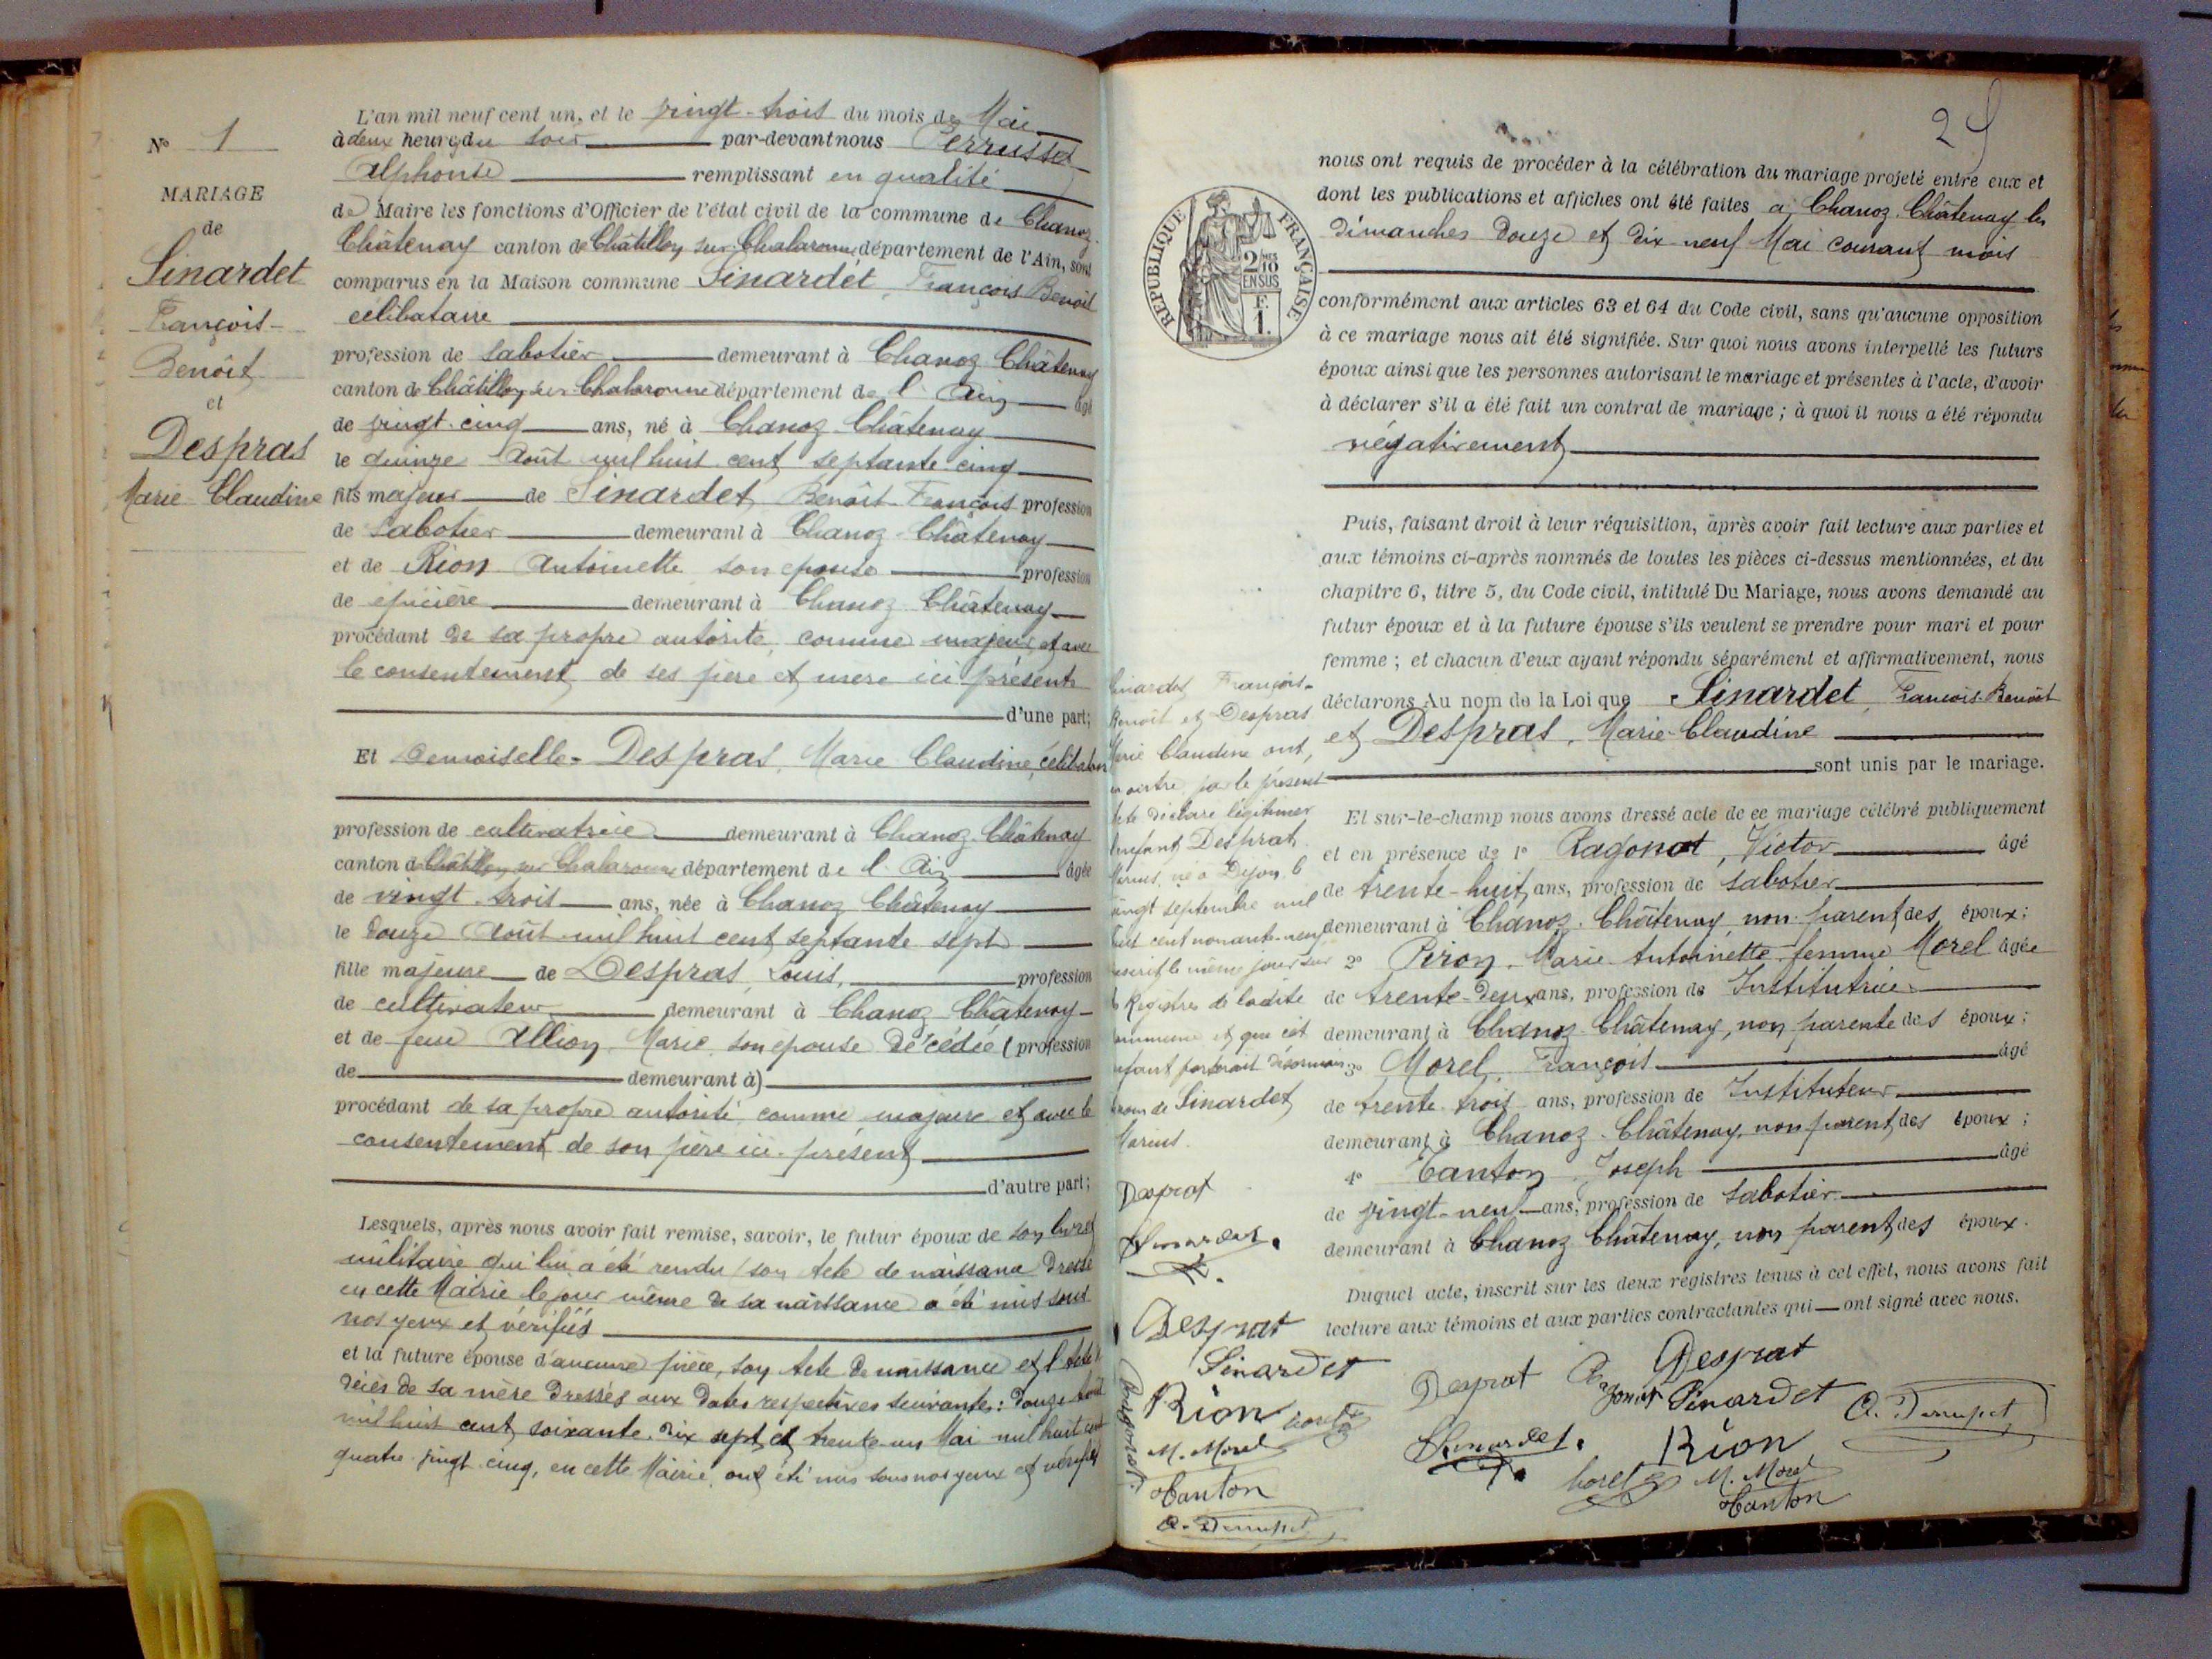 N° 1
MARIAGE
de
Sinardet
François-
Benoît
et
Despras
Marie Claudine
L'an mil neuf cent un, et le vingt-trois du mois de Mai
à deux heures du soir par-devant nous Perrusset
Alphonse remplissant en qualité
de Maire les fonctions d'Officier de l'état civil de la commune de Chanoz-
Châtenay canton de Châtillon sur Chalaronne département de l'Ain, sont
comparus en la Maison commune Sinardet, François Benoît
célibataire
profession de sabotier demeurant à Chanoz Châtenay
canton de Châtillon sur Chalaronne département de l'Ain âgé
de vingt-cinq ans, né à Chanoz-Châtenay
le quinze Août mil huit cent septante-cinq
fils majeur de Sinardet, Benoît-François profession
de Sabotier demeurant à Chanoz-Châtenay
et de Rion Antoinette son épouse profession
de épicière demeurant à Chanoz Châtenay
procédant de sa propre autorité, comme majeur, et avec
le consentement de ses père et mère ici présents
d'une part;
Et Demoiselle- Despras, Marie Claudine, célibataire
profession de cultivatrice demeurant à Chanoz-Châtenay
canton de Châtillon sur Chalaronne département de l'Ain âgée
de vingt-trois ans, née à Chanoz Châtenay
le douze Août mil huit cent septante sept
fille majeure de Despras, Louis, profession
de cultivateur demeurant à Chanoz Châtenay-
et de feue Allion, Marie, son épouse décédée (profession
de demeurant à)
procédant de sa propre autorité comme majeure et avec le
consentement de son père ici-présent
d'autre part;
Lesquels, après nous avoir fait remise, savoir, le futur époux de son livret
militaire qui lui a été rendu / son Acte de naissance dressé
en cette Mairie le jour même de sa naissance a été mis sous
nos yeux et vérifiés
et la future épouse d'aucune pièce, son Acte de naissance et l'Acte de
décès de sa mère dressés aux dates respectives suivantes: douze Août
mil huit cent soixante-dix sept, et trente-un Mai mil huit cent
quatre-vingt-cinq, en cette Mairie, ont été mis sous nos yeux et vérifiés
29
REPUBLIQUE FRANÇAISE
2/10
EN SUS
F.
1.
nous ont requis de procéder à la célébration du mariage projeté entre eux et
dont les publications et affiches ont été faites à Chanoz-Châtenay les
dimanches douze et dix-neuf Mai courant mois
conformément aux articles 63 et 64 du Code civil, sans qu'aucune opposition
à ce mariage nous ait été signifiée. Sur quoi nous avons interpellé les futurs
époux ainsi que les personnes autorisant le mariage et présentes à l'acte, d'avoir
à déclarer s'il a été fait un contrat de mariage ; à quoi il nous a été répondu
négativement
Puis, faisant droit à leur réquisition, après avoir fait lecture aux parties et
aux témoins ci-après nommés de toutes les pièces ci-dessus mentionnées, et du
chapitre 6, titre 5, du Code civil, intitulé Du Mariage, nous avons demandé au
futur époux et à la future épouse s'ils veulent se prendre pour mari et pour
femme ; et chacun d'eux ayant répondu séparément et affirmativement, nous
déclarons Au nom de la Loi que Sinardet, François-Benoît
et Despras, Marie-Claudine
sont unis par le mariage.
Et sur-le-champ nous avons dressé acte de ce mariage célébré publiquement
et en présence de 1° Ragonot, Victor âgé
de trente-huit ans, profession de sabotier
demeurant à Chanoz-Châtenay, non parent des époux;
2° Piron, Marie-Antoinette femme Morel âgée
de trente-deux ans, profession de Institutrice
demeurant à Chanoz-Châtenay, non parente des époux;
3° Morel, François âgé
de trente-trois ans, profession de Instituteur
demeurant à Chanoz-Châtenay, non parent des époux ;
4° Canton, Joseph âgé
de vingt-neuf ans, profession de Sabotier
demeurant à Chanoz Châtenay, non parent des époux.
Duquel acte, inscrit sur les deux registres tenus à cet effet, nous avons fait
lecture aux témoins et aux parties contractantes qui ont signé avec nous.
Sinardet, François-
Benoît et Despras
Marie Claudine ont,
en outre, par le présent
Acte déclaré légitimer
l'enfant Desprat,
Marius, né à Dijon le
vingt septembre mil
huit cent nonante-neuf
inscrit le même jour sur
les Registres de ladite
commune et que cet
enfant porterait désormais
le nom de Sinardet
Marius.
Desprat
Sinardet
Desprat
Sinardet
Rion
Morel
M. Morel
Canton
A. Perrusset
Ragonot
Desprat
Ragonot
Desprat
Sinardet
A. Perrusset
Sinardet
Rion
Morel
M. Morel
Canton